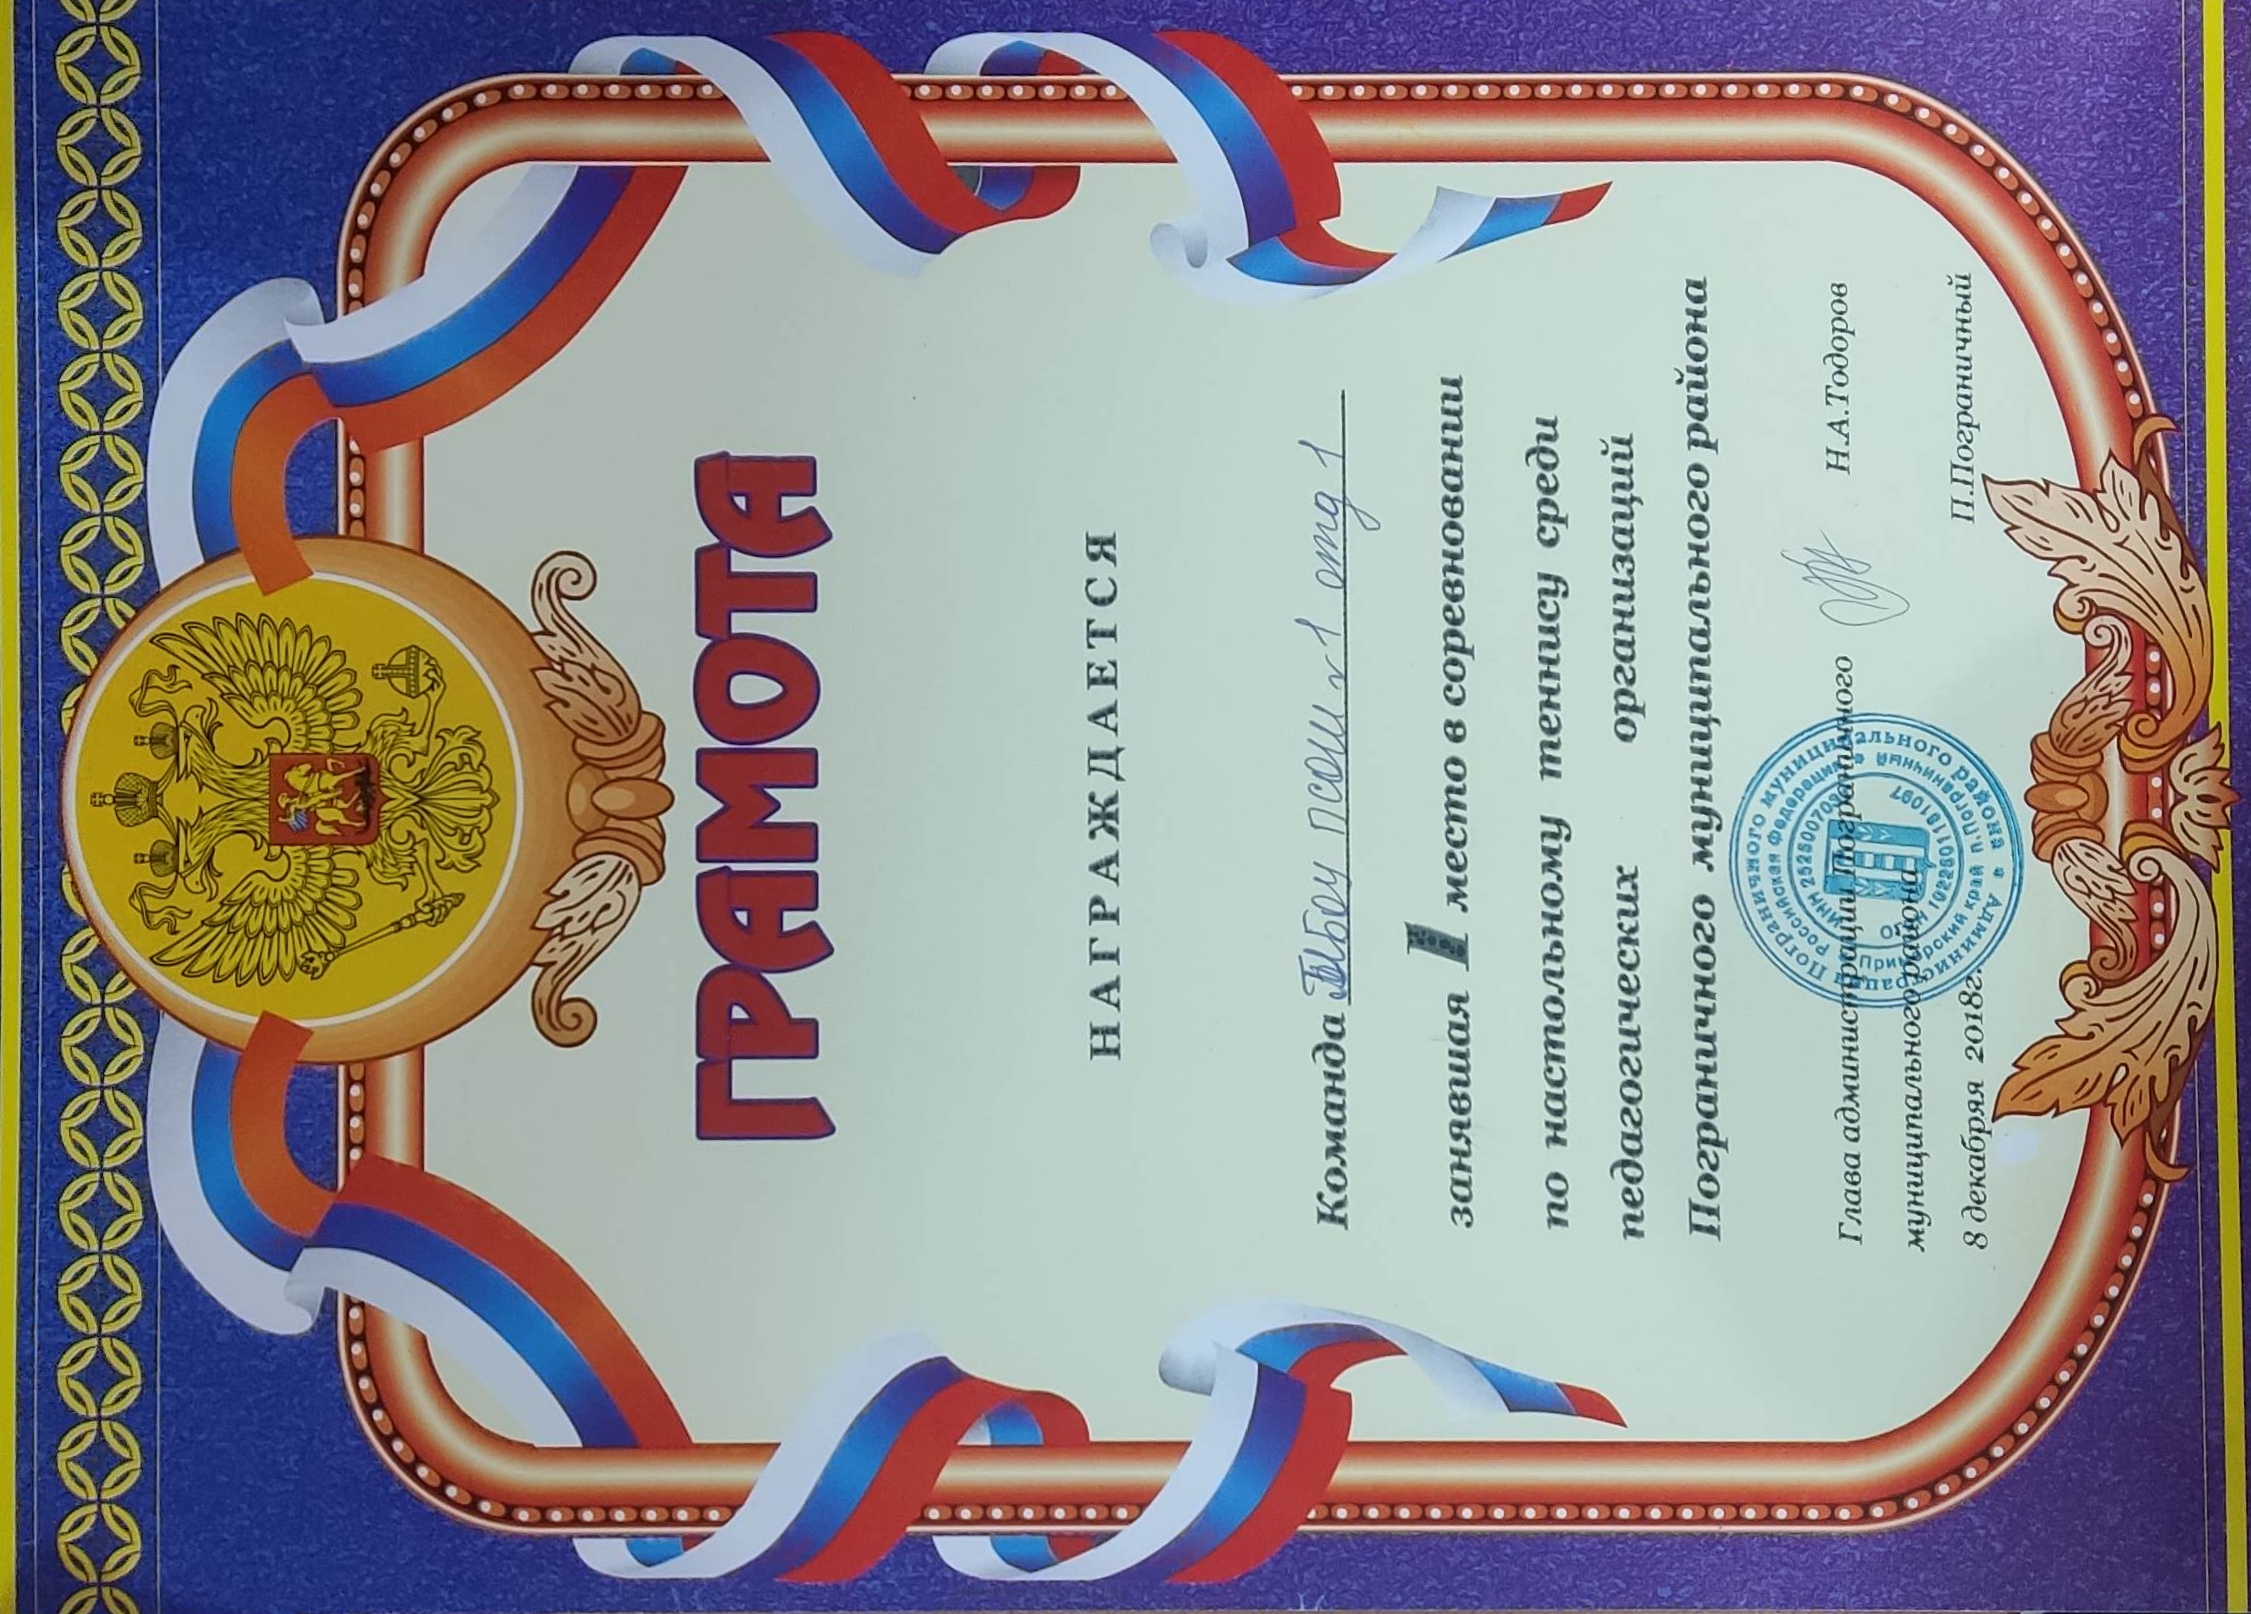 ГРАМОТА
НАГРАЖДАЕТСЯ
Команда МБОУ ПСОШ №1 отд 1
занявшая 1 место в соревновании
по настольному теннису среди
педагогических организаций
Пограничного муниципального района
Глава администрации Пограничного Н.А.Тодоров
муниципального района
8 декабряя 2018г. П.Пограничный
Администрация Пограничного муниципального района
Российская Федерация Приморский край п.Пограничный
ОГРН 1022501181097
ИНН